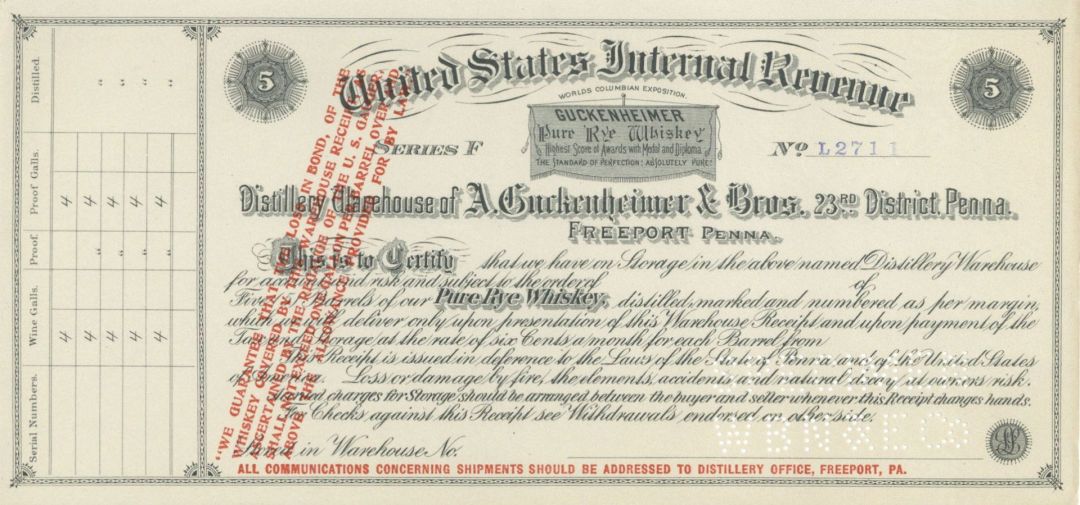 Serial Numbers. Wine Galls. Proof. Proof Galls. Distilled.
4 " 4 "
4 4 "
4 4 "
4 " 4 "
4 4
5 United States Internal Revenue 5
WORLDS COLUMBIAN EXPOSITION.
GUCKENHEIMER
Pure Rye Whiskey
Highest Score of Awards with Medal and Diploma
THE STANDARD OF PERFECTION: ABSOLUTELY PURE.
SERIES F Nº L2711
Distillery Warehouse of A. Guckenheimer & Bros. 23RD District, Penna.
FREEPORT PENNA.
This is to Certify that we have on Storage in the above named Distillery Warehouse
for account and risk and subject to the order of of
Five Barrels of our Pure Rye Whiskey, distilled, marked and numbered as per margin,
which we will deliver only upon presentation of this Warehouse Receipt and upon payment of the
Tax and Storage at the rate of six Cents a month for each Barrel from
This Receipt is issued in deference to the Laws of the State of Penn'a and of the United States
of America. Loss or damage by fire, the elements, accidents and natural decay at owners risk.
charges for Storage, should be arranged between the buyer and seller whenever this Receipt changes hands.
For Checks against this Receipt see Withdrawals endorsed on other side.
Stored in Warehouse No.
W B N & E Co
"WE GUARANTEE THAT THE LOSS IN BOND, OF THE
WHISKEY COVERED BY THIS WAREHOUSE RECEIPT,
ASCERTAINED IN THE GAUGE OF THE U. S. GAUGER,
SHALL NOT EXCEED ONE GALLON PER BARREL OVER AND
ABOVE THE ALLOWANCE PROVIDED FOR BY LAW
ALL COMMUNICATIONS CONCERNING SHIPMENTS SHOULD BE ADDRESSED TO DISTILLERY OFFICE, FREEPORT, PA.